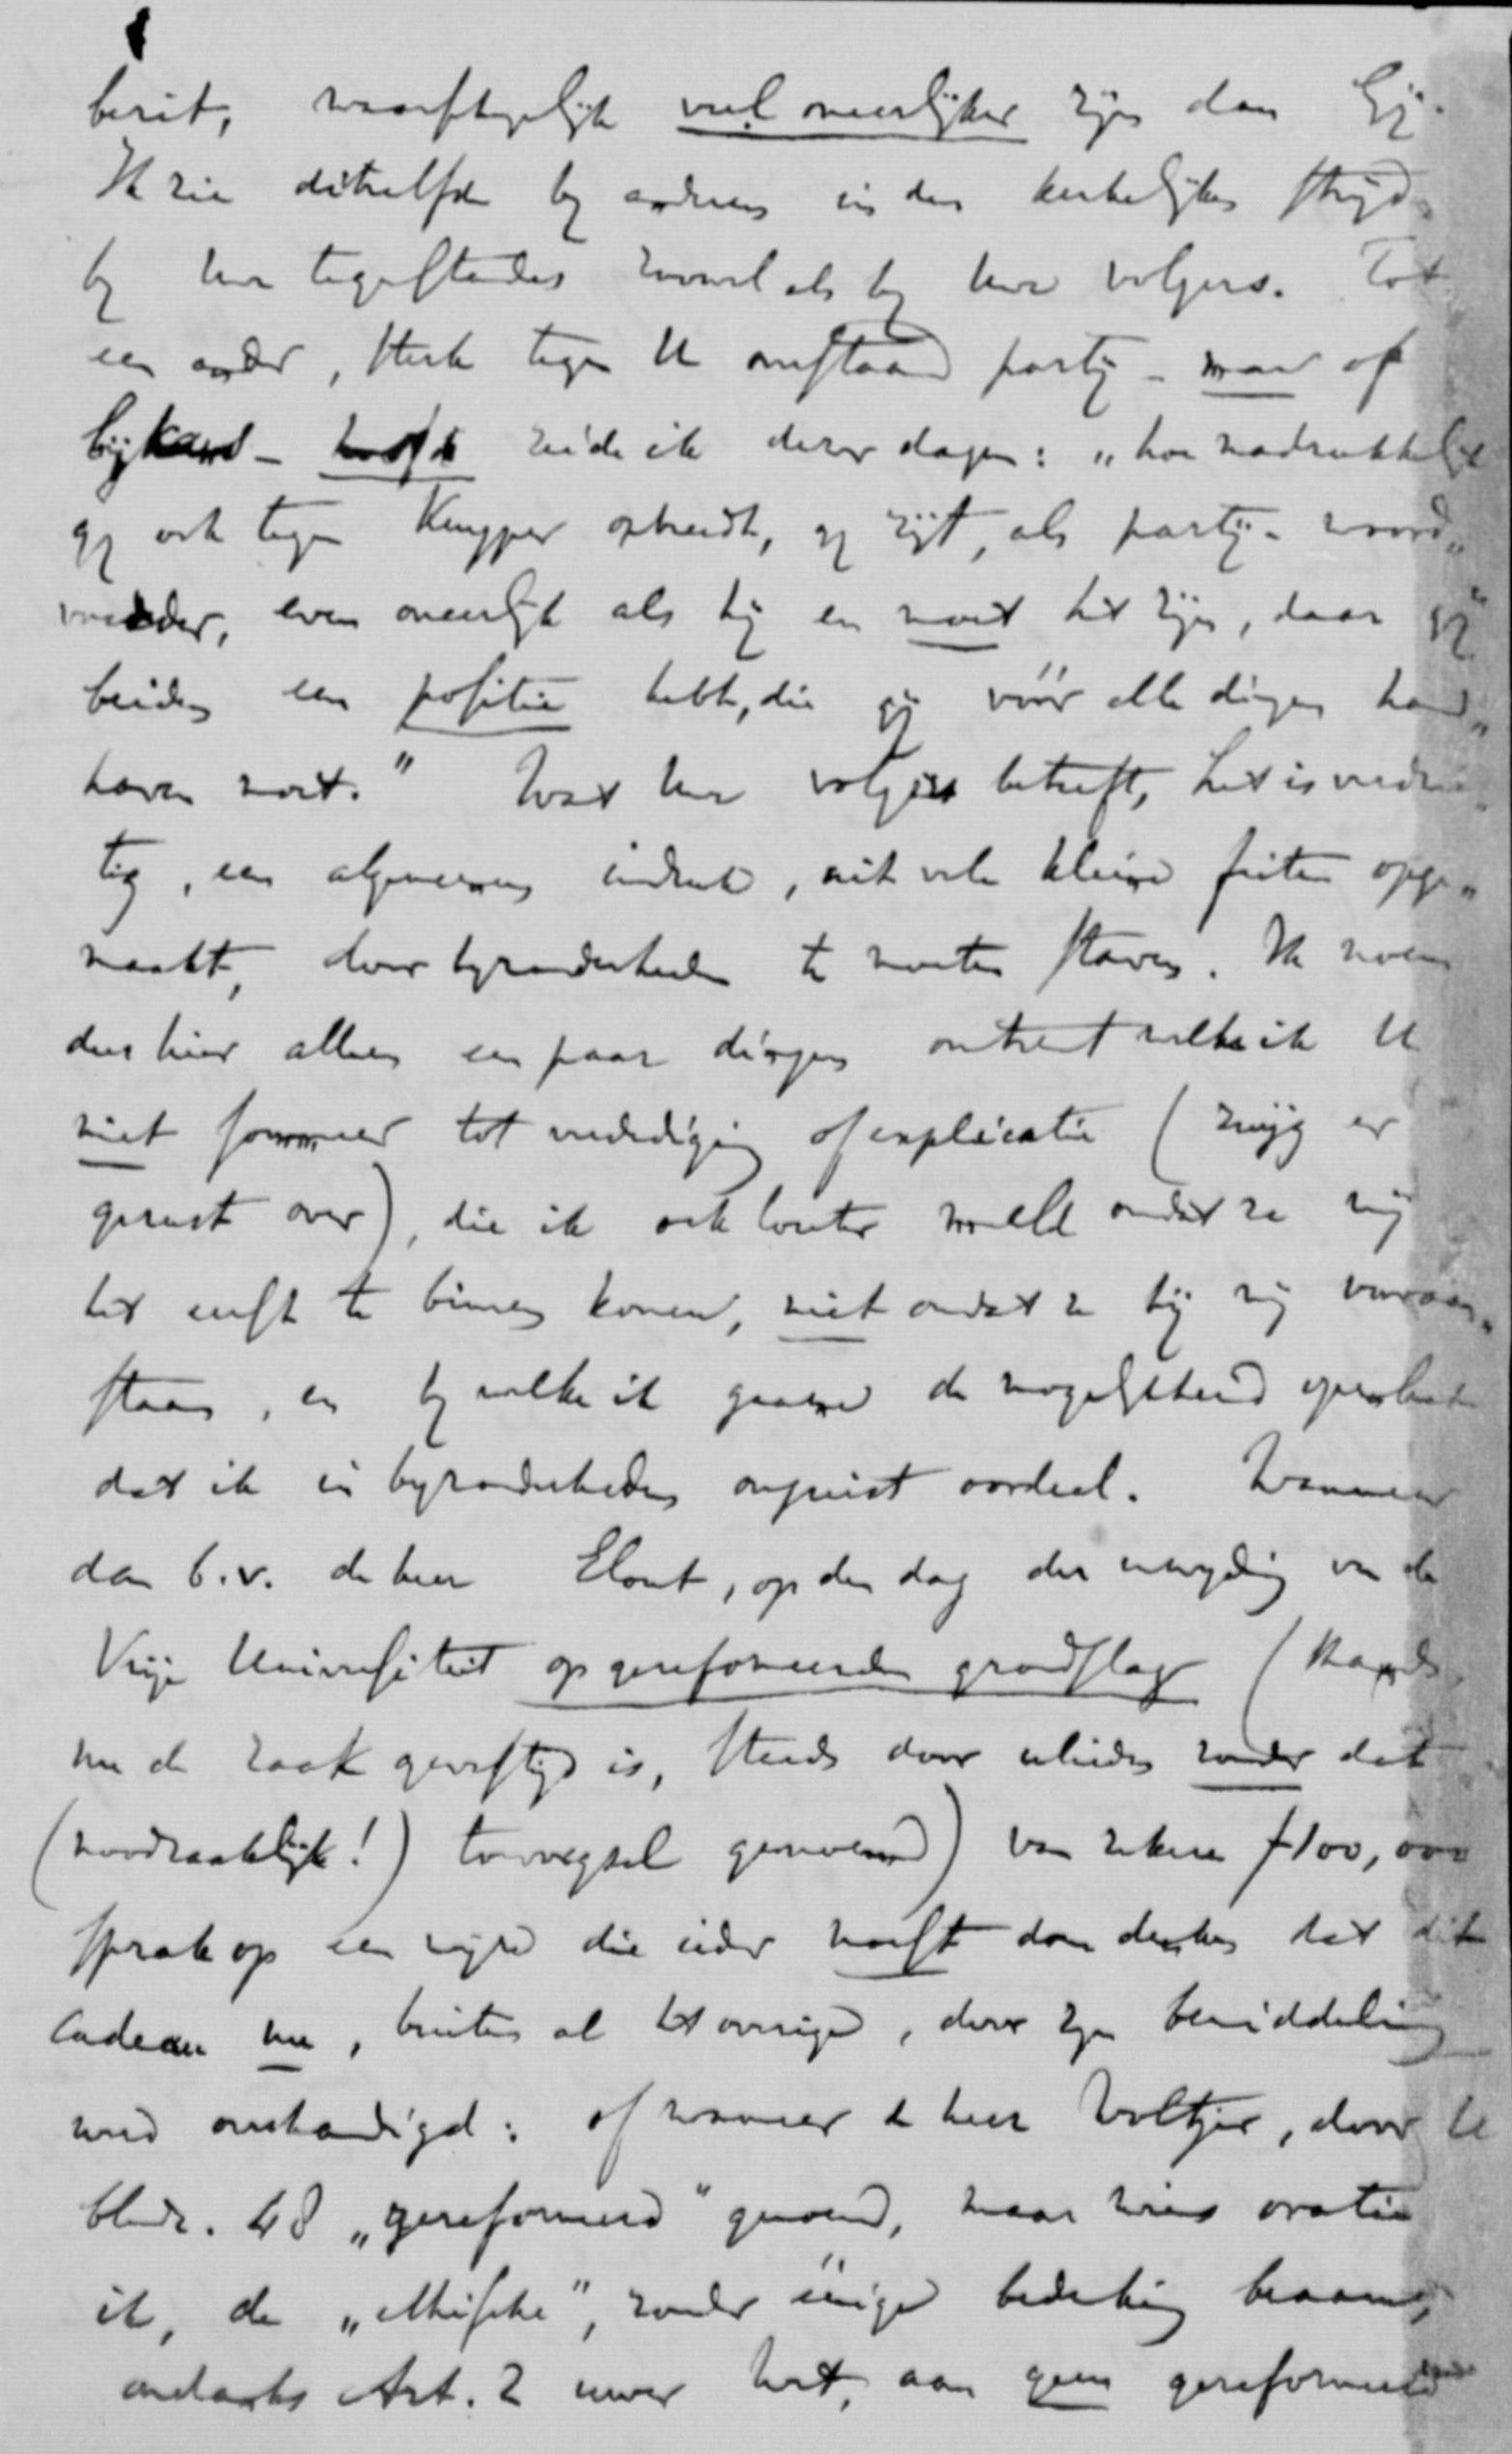 bezit, waarschijnlijk veel oneerlijker zijn dan Gij.
Ik zie ditzelfde bij anderen in den kerkelijken strijd,
bij uw tegenstanders zoowel als bij uwe volgers. Tot
een ander, sterk tegen U overstaand partij-man of
bijkans-hoofd zeide ik dezer dagen: „hoe nadrukkelijk
gij ook tegen Kuyper optreedt, gij zijt, als partij-woord„
voerder, even oneerlijk als hij en moet het zijn, daar gij
beiden een positie hebt, die gij vóór alle dingen hand„
haven moet." Wat uw volgers betreft, het is
tig, een algemeenen indruk, uit vele kleine feiten opge„
maakt, door bijzonderheden te moeten staven. Ik noem
dus hier alleen een paar dingen omtrent welke ik U
niet sommeer tot verdediging of explicatie (zwijg er
gerust over), die ik ook louter meld omdat ze mij
het eerst te binnen komen, niet omdat ze bij mij vooraan„
staan, en bij welke ik gaarne de mogelijkheid openlaat
dat ik in bijzonderheden onjuist oordeel. Wanneer
dan b.v. de heer Elout, op den dag der inwijding van de
Vrije Universiteit op gereformeerden grondslag (thands,
nu de zaak gevestigd is, steeds door ulieden zonder dat
(noodzakelijk!) toevoegsel genoemd) van zekere ƒ100,000
sprak op een wijze die ieder moest doen denken dat dit
cadeau nu, buiten al het overige, door zijn bemiddeling
werd overhandigd: of wanneer de heer Woltjer, door U
bladz. 48 „gereformeerd" genoemd, maar wiens oratie
ik, de „ethische", zonder eenige bedenking beaam,
ondanks Art. 2 uwer wet, aan geen gereformeerd